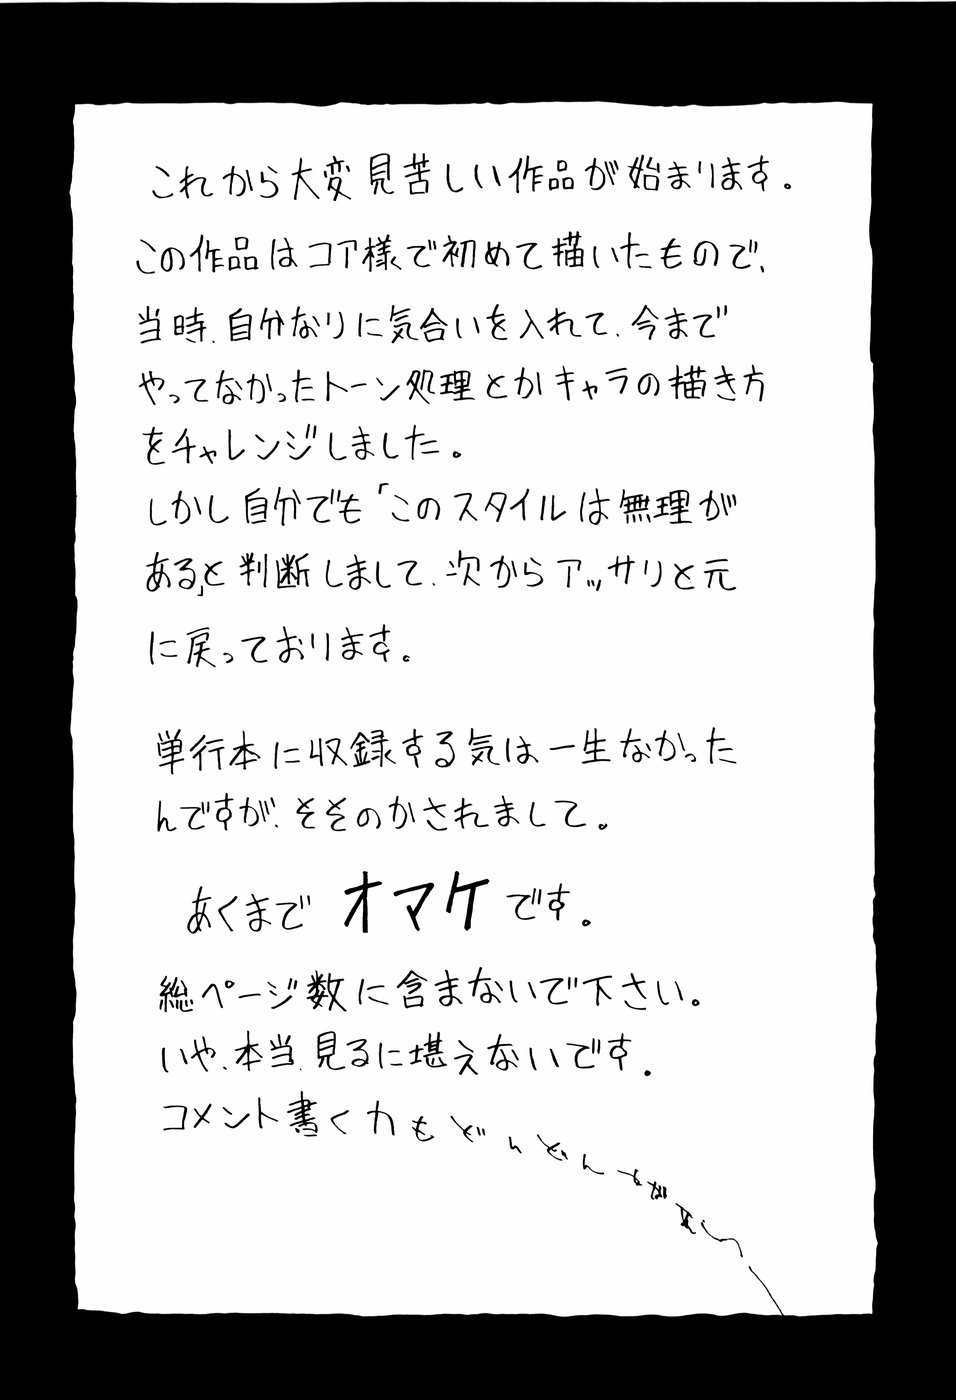 これから大変見苦しい作品が始まります。
この作品はコア様で初めて描いたもので、
当時、自分なりに気合いを入れて、今まで
やってなかったトーン処理とかキャラの描き方
をチャレンジしました。
しかし自分でも「このスタイルは無理が
ある」と判断しまして、次からアッサリと元
に戻っております。
単行本に収録する気は一生なかった
んですが、そそのかされまして。
あくまで オマケ です。
総ページ数に含まないで下さい。
いや、本当、見るに堪えないです。
コメント書く力もどんどん